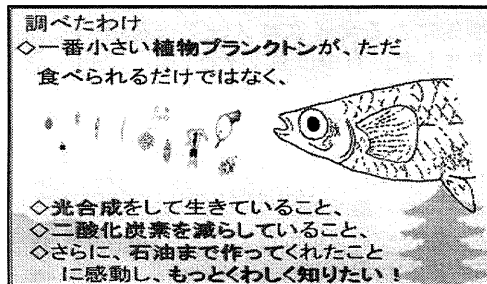 調べたわけ
◇一番小さい植物プランクトンが、ただ
食べられるだけではなく、
◇光合成をして生きていること、
◇二酸化炭素を減らしていること、
◇さらに、石油まで作ってくれたこと
に感動し、もっとくわしく知りたい！